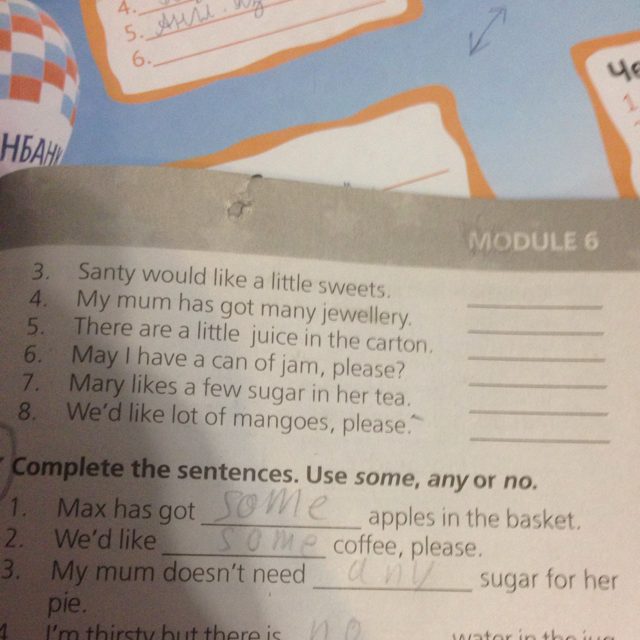 4.
5.
6.
НБАН
MODULE 6
3. Santy would like a little sweets.
4. My mum has got many jewellery.
5. There are a little juice in the carton.
6. May I have a can of jam, please?
7. Mary likes a few sugar in her tea.
8. We'd like lot of mangoes, please.
Complete the sentences. Use some, any or no.
1. Max has got some apples in the basket.
2. We'd like some coffee, please.
3. My mum doesn't need any sugar for her
pie.
4. I'm thirsty but there is no water in the jug